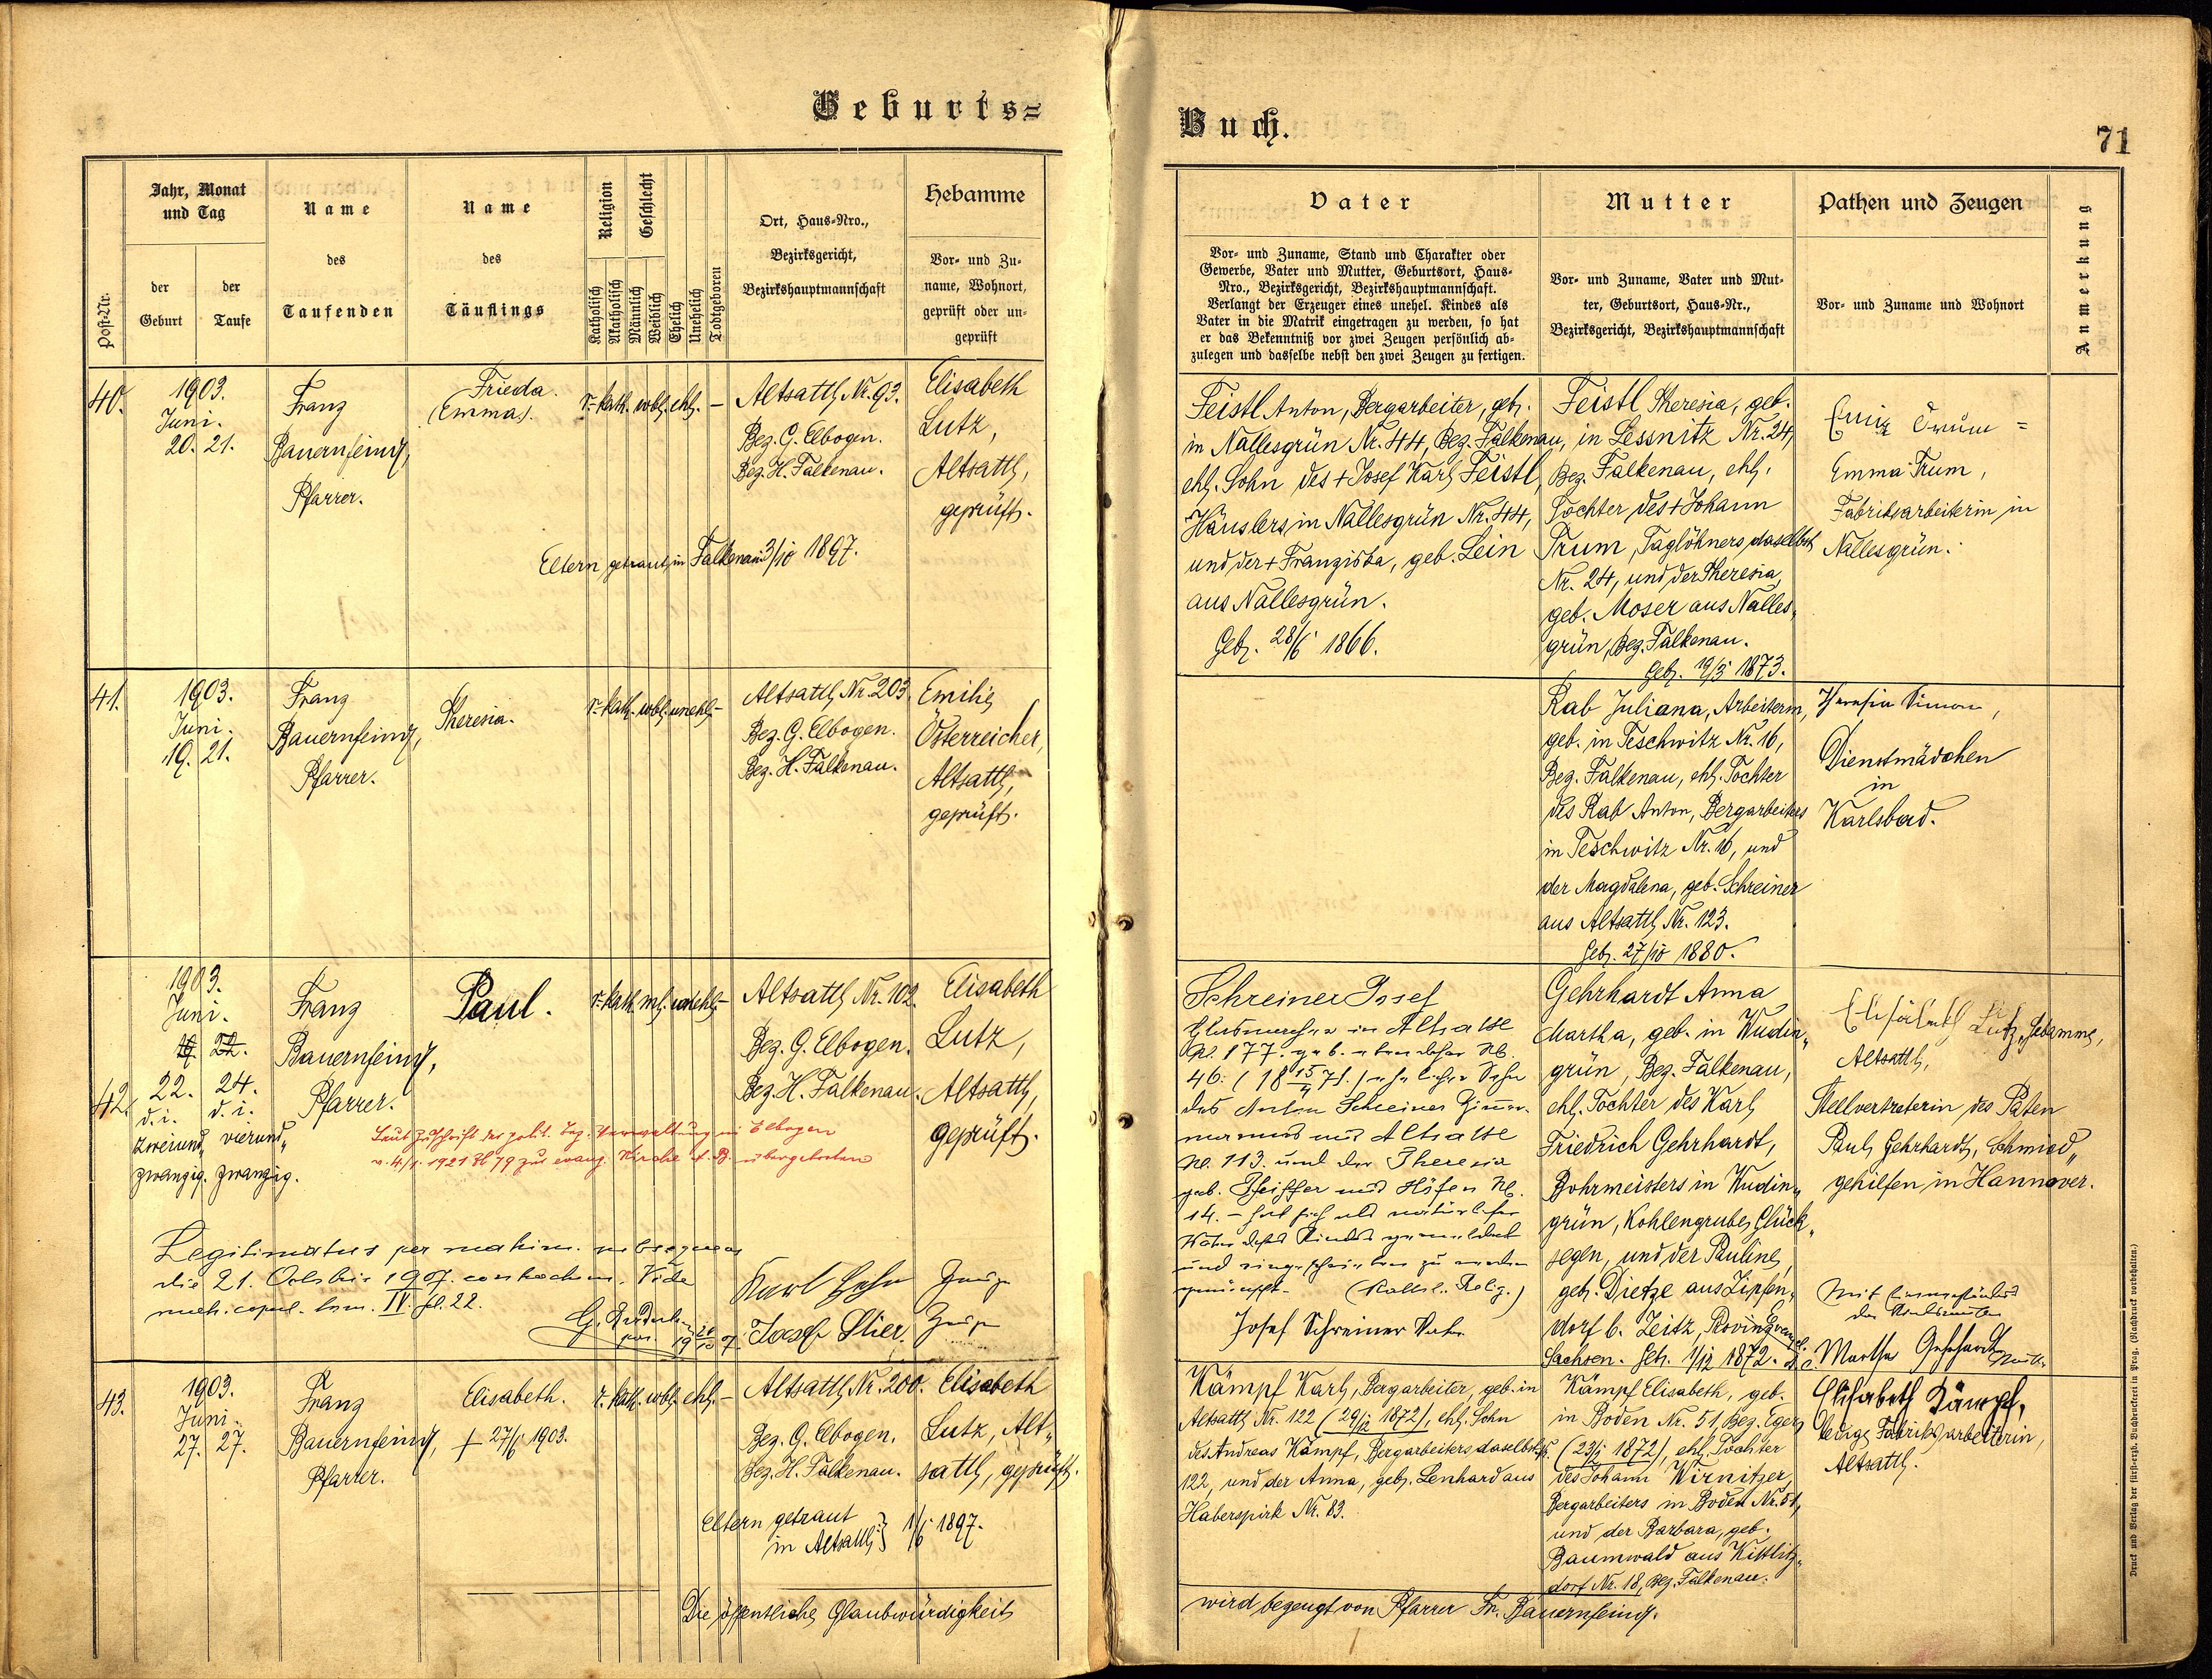 Geburts=
Buch.
71
Post-Nr.
Jahr, Monat
und Tag
der
Geburt
der
Taufe
Name
des
Taufenden
Name
des
Täuflings
Religion
Katholisch
Akatholisch
Geschlecht
Männlich
Weiblich
Ehelich
Unehelich
Todtgeboren
Ort, Haus-Nro.,
Bezirksgericht,
Bezirkshauptmannschaft
Hebamme
Vor- und Zu-
name, Wohnort,
geprüft oder un-
geprüft
Vater
Vor- und Zuname, Stand und Charakter oder
Gewerbe, Vater und Mutter, Geburtsort, Haus-
Nro., Bezirksgericht, Bezirkshauptmannschaft.
Verlangt der Erzeuger eines unehel. Kindes als
Vater in die Matrik eingetragen zu werden, so hat
er das Bekenntniß vor zwei Zeugen persönlich ab-
zulegen und dasselbe nebst den zwei Zeugen zu fertigen.
Mutter
Vor- und Zuname, Vater und Mut-
ter, Geburtsort, Haus-Nr.,
Bezirksgericht, Bezirkshauptmannschaft
Pathen und Zeugen
Vor- und Zuname und Wohnort
Anmerkung
40.
1903.
Juni.
20. 21.
Franz
Bauernfeind,
Pfarrer.
Frieda.
(Emma).
r. kath. wbl. ehl. –
Altsattl Nr. 93.
Bez. G. Elbogen.
Bez. H. Falkenau.
Elisabeth
Lutz,
Altsattl,
geprüft.
Eltern getraut in Falkenau 3/10 1897.
Feistl Anton, Bergarbeiter, geb.
in Nallesgrün Nr. 44, Bez. Falkenau,
ehl. Sohn des + Josef Karl Feistl,
Häuslers in Nallesgrün Nr. 44,
und der + Franziska, geb. Lein
aus Nallesgrün.
Geb. 28/6 1866.
Feistl Theresia, geb.
in Lessnitz Nr. 24,
Bez. Falkenau, ehl.
Tochter des + Johann
Trum, Taglöhners daselbst
Nr. 24, und der Theresia,
geb. Moser aus Nalles-
grün, Bez. Falkenau.
Geb. 19/3 1873.
Trum =
Emma Trum,
Fabriksarbeiterin in
Nallesgrün.
41.
1903.
Juni.
19. 21.
Franz
Bauernfeind,
Pfarrer.
Theresia.
r. kath. wbl. unehl. –
Altsattl Nr. 203.
Bez. G. Elbogen.
Bez. H. Falkenau.
Emilie
Österreicher,
Altsattl,
geprüft.
Rab Juliana, Arbeiterin,
geb. in Teschwitz Nr. 16,
Bez. Falkenau, ehl. Tochter
des Rab Anton, Bergarbeiters
in Teschwitz Nr. 16, und
der Magdalena, geb. Schreiner
aus Altsattl Nr. 123.
Geb. 27/10 1880.
Theresia Simon,
Dienstmädchen
in
Karlsbad.
42.
1903.
Juni.
22. 24.
d. i. d. i.
zweiund„ vierund„
zwanzig. zwanzig.
Franz
Bauernfeind,
Pfarrer.
Paul.
r. kath. ml. unehl. –
Altsattl Nr. 102.
Bez. G. Elbogen.
Bez. H. Falkenau.
Elisabeth
Lutz,
Altsattl,
geprüft.
Laut Zuschrift der polit. Bez. Verwaltung in Elbogen
v. 4/1. 1921 Zl 79 zur evang. Kirche A. B. übergetreten
Legitimatus per matrim. subsequens
die 21. Octobris 1907. contractum. Vide
matr. copul. tom. IV. fol. 22.
Karl Zeuge
Josef Stier. Zeuge
Schreiner Josef
Glasmacher in Altsattl
Nr. 177. geb. ebendaselbst Nr.
46. (18 15/4 71.) ehelicher Sohn
des Anton Schreiner Zimmer-
mannes aus Altsattl
Nr. 113. und der Theresia
geb. Pfeiffer aus Höfen Nr.
14. – hat sich als natürlicher
Vater dieses Kindes gemeldet
und eingeschrieben zu werden
gewünscht. (Kathol. Relig.)
Josef Schreiner Vater
Gehrhardt Anna
Martha, geb. in Wudin-
grün, Bez. Falkenau,
ehl. Tochter des Karl
Friedrich Gehrhardt,
Bohrmeisters in Wudin-
grün, Kohlengrube Glück-
segen, und der Pauline,
geb. Dietze aus Zipsen-
dorf b. Zeitz, Provinz
Sachsen. Geb. 1/12 1872.
Elisabeth Lutz, Hebamme,
Altsattl,
Stellvertreterin des Paten
Paul Gehrhardt, Schmied„
gehilfen in Hannover.
Mit Einverständnis
der Kindesmutter
Martha Gehrhardt
43.
1903.
Juni.
27. 27.
Franz
Bauernfeind,
Pfarrer.
Elisabeth.
+ 27/6 1903.
r. kath. wbl. ehl. –
Altsattl, Nr. 200.
Bez. G. Elbogen.
Bez. H. Falkenau.
Elisabeth
Lutz, Alt„
sattl, geprüft.
Eltern getraut
in Altsattl } 1/6 1897.
Kämpf Karl, Bergarbeiter, geb. in
Altsattl Nr. 122 (29/12 1872), ehl. Sohn
des Andreas Kämpf, Bergarbeiters daselbst
122, und der Anna, geb. Lenhard aus
Haberspirk Nr. 83.
Kämpf Elisabeth, geb.
in Boden Nr. 51, Bez. Eger,
(23/1 1872), ehl. Tochter
des Johann Wirnitzer,
Bergarbeiters in Boden Nr. 51,
und der Barbara, geb.
Baumwald aus Kittlitz-
dorf Nr. 18, Bez. Falkenau.
Elisabeth Kämpf,
ledige Fabriksarbeiterin,
Altsattl.
Die öffentliche Glaubwürdigkeit
wird bezeugt von Pfarrer Fr. Bauernfeind.
Druck und Verlag der fürst-erzb. Buchdruckerei in Prag. (Nachdruck vorbehalten.)